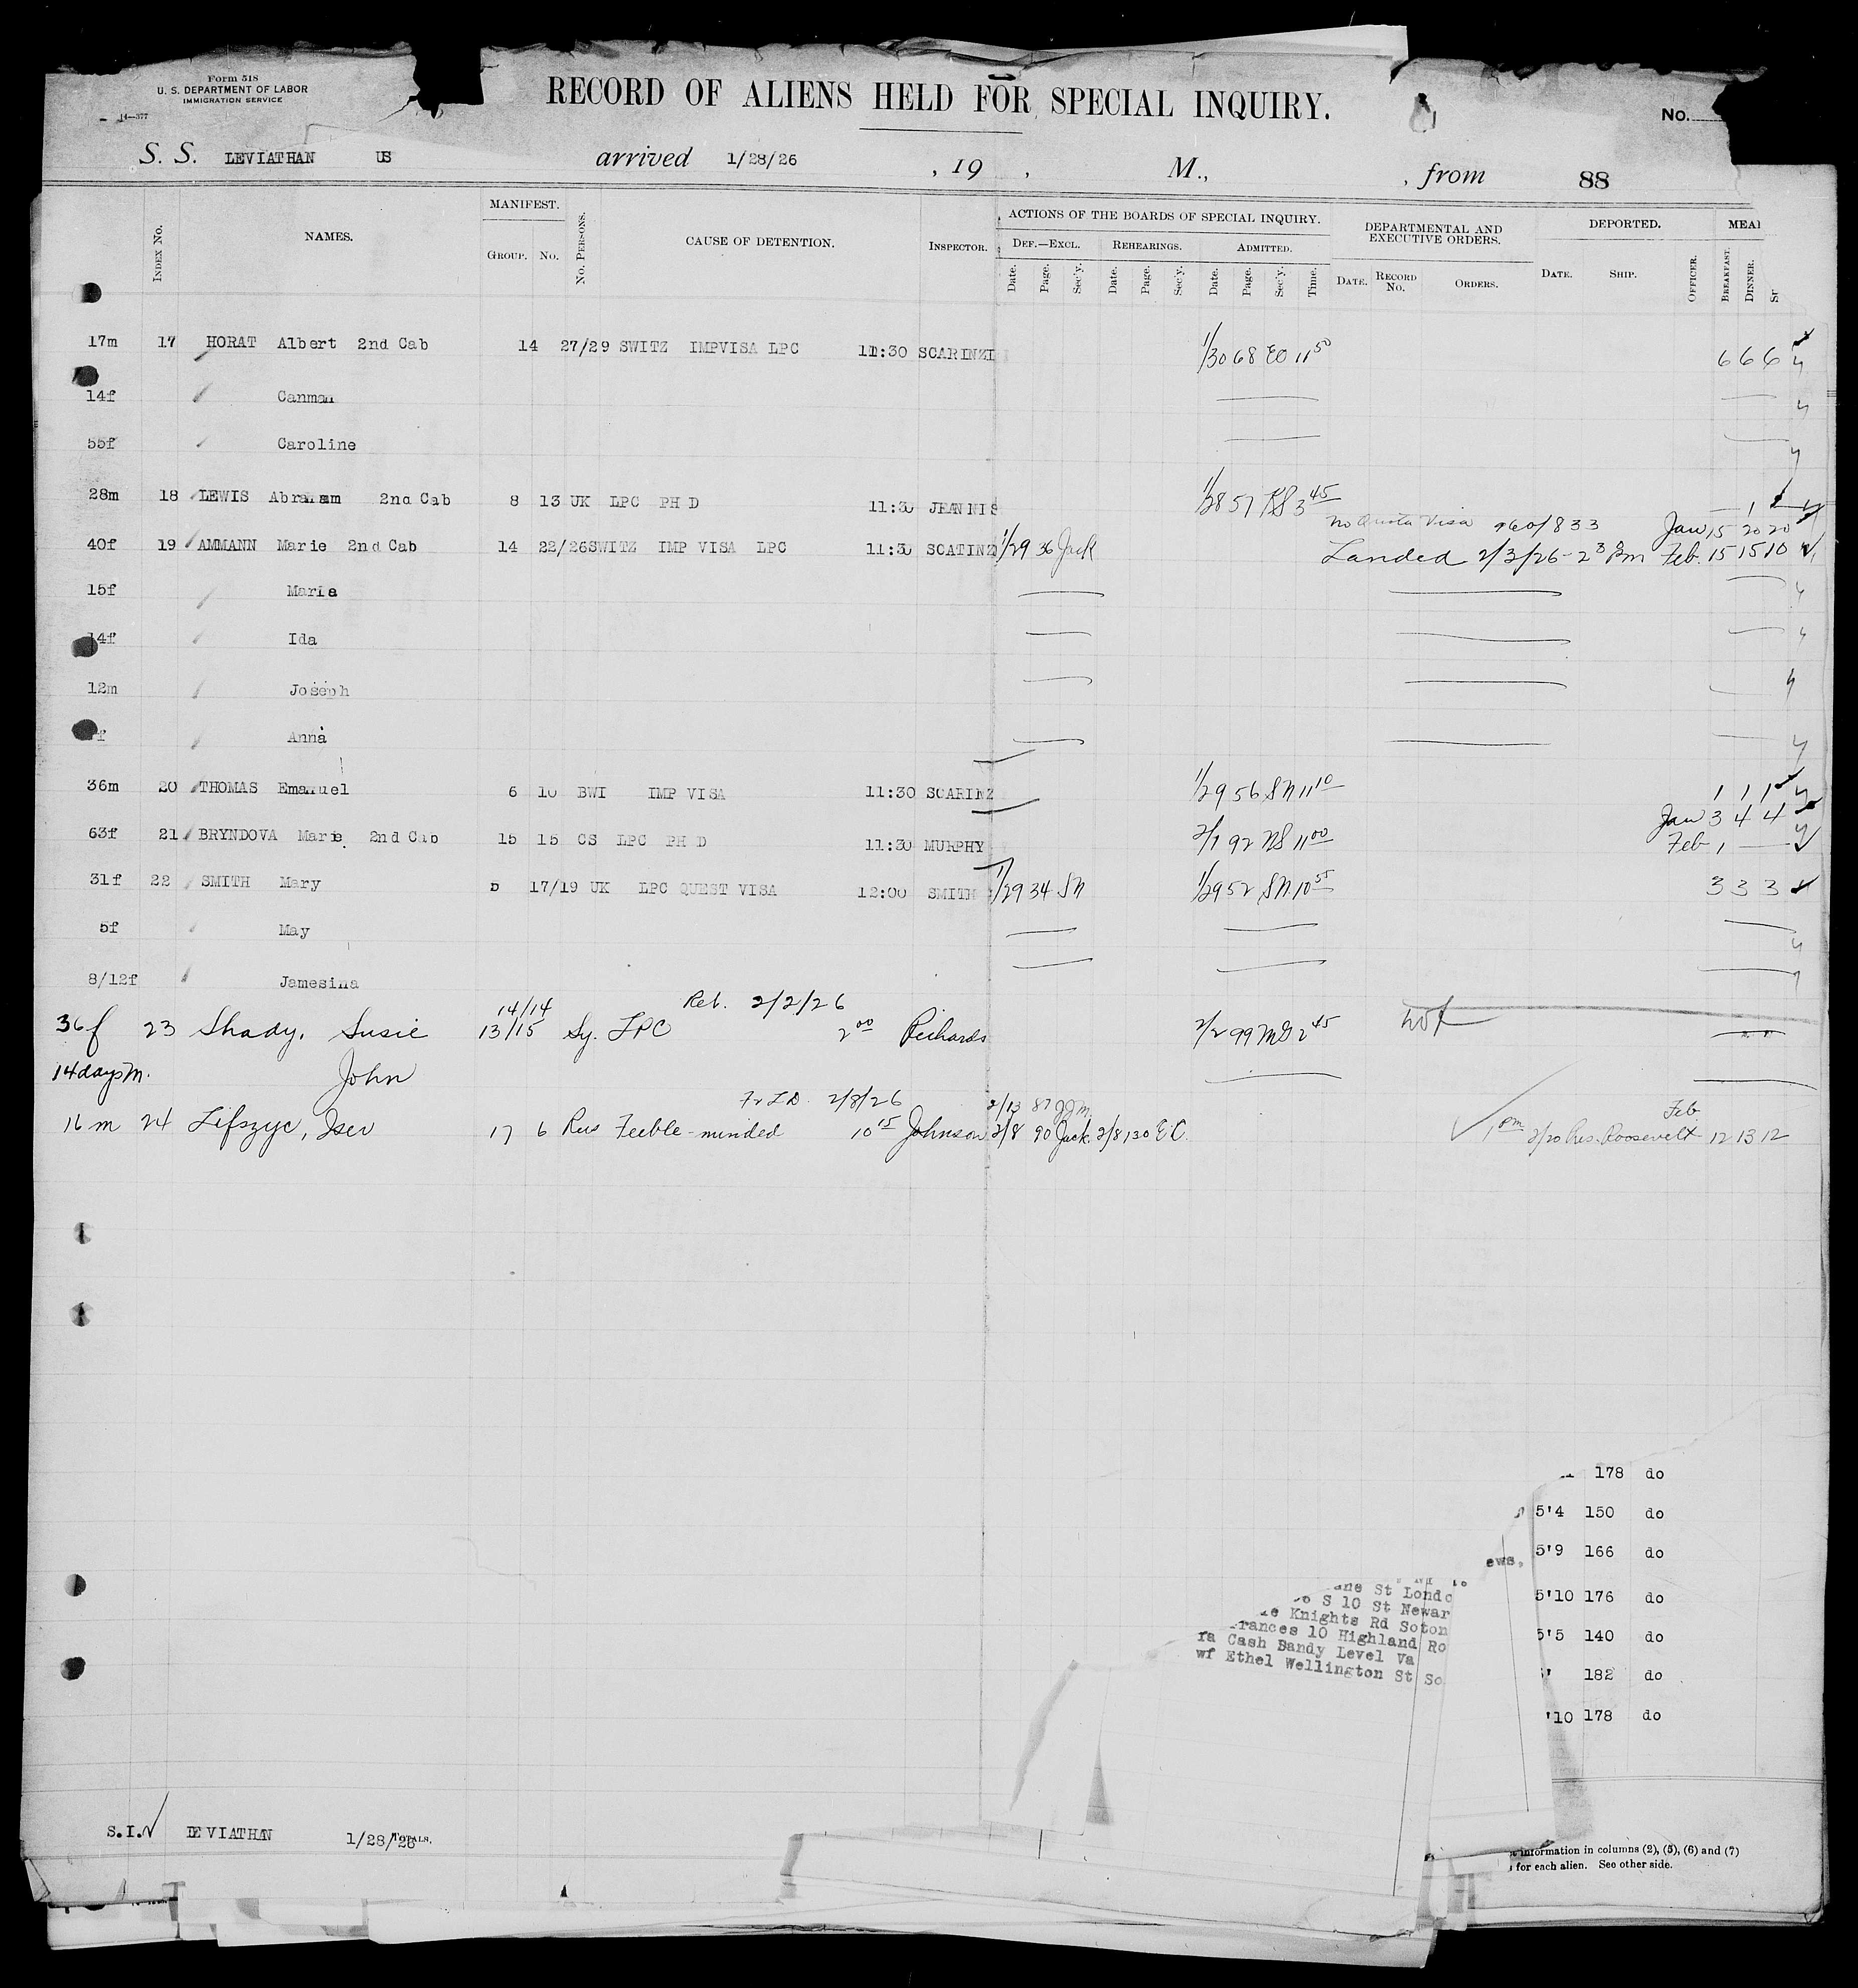 Form 518
U. S. DEPARTMENT OF LABOR
IMMIGRATION SERVICE
14—377
RECORD OF ALIENS HELD FOR SPECIAL INQUIRY.
No.
S. S. LEVIATHAN US arrived 1/28/26 , 19 , M., , from 88
INDEX No. NAMES. MANIFEST. GROUP. No. No. PERSONS. CAUSE OF DETENTION. INSPECTOR. ACTIONS OF THE BOARDS OF SPECIAL INQUIRY. DEPARTMENTAL AND EXECUTIVE ORDERS. DEPORTED. MEAL
DEF.—EXCL. REHEARINGS. ADMITTED.
Date. Page. Sec'y. Date. Page. Sec'y. Date. Page. Sec'y. Time. DATE. RECORD No. ORDERS. DATE. SHIP. OFFICER. BREAKFAST. DINNER. SU
17m 17 HORAT Albert 2nd Cab 14 27/29 SWITZ IMPVISA LPC 11:30 SCARINZI 1/30 68 EO 11 50 6 6 6
14f Canman
55f Caroline
28m 18 LEWIS Abraham 2nd Cab 8 13 UK LPC PH D 11:30 JEANNIS 1/28 57 3 45 1
No Quota Visa Jan 15 20 20
40f 19 AMMANN Marie 2nd Cab 14 22/26 SWITZ IMP VISA LPC 11:30 SCATINZ 1/29 36 Jack Landed 2/3/26 - 2 Pm Feb. 15 15 10
15f Maria
14f Ida
12m Joseph
f Anna
36m 20 THOMAS Emanuel 6 10 BWI IMP VISA 11:30 SCARINZ 1/29 56 SN 11 10 1 1 1
Jan 3 4 4
63f 21 BRYNDOVA Marie 2nd Cab 15 15 CS LPC PH D 11:30 MURPHY 2/1 92 11 00 Feb 1
31f 22 SMITH Mary 5 17/19 UK LPC QUEST VISA 12:00 SMITH 1/29 34 SN 1/29 52 SN 10 55 3 3 3
5f May
8/12f Jamesina
14/14 Ret. 2/2/26
36f 23 Shady, Susie 13/15 Sy. LPC 2 00 Richards 2/2 99 MG 2 45
14 days M. John
2/8/26 2/13 87 JJM. Feb
16 m 24 Lifszyc, Iser 17 6 Rus Feeble-minded 10 15 Johnson 2/8 90 Jack. 2/8 130 E C. 1 pm 2/20 Pres. Roosevelt 12 13 12
178 do
5'4 150 do
ews, 5'9 166 do
ane St Londo
S 10 St Newar 5'10 176 do
Knights Rd Soton
rances 10 Highland Ro 5'5 140 do
ra Cash Bandy Level Va
wf Ethel Wellington St So 182 do
'10 178 do
S.I. LEVIATHAN 1/28/26 TOTALS.
information in columns (2), (5), (6) and (7)
for each alien. See other side.